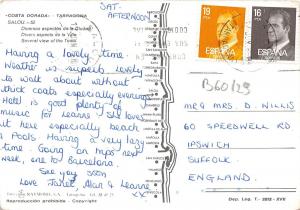 "COSTA DORADA" - TARRAGONA
SALOU - 52
Diversos aspectos de la Ciudad
Divers aspects de la Ville
Several view of the
SAT-
AFTERNOON
Having a lovely time.
Weather is superb lovely
to walk about without
thick coats especially evenings
Hotel is good plenty of
music for Leanne. She loves
it here especially beach
& Pools. Having a very lazy
time. Going on trips next
week, one to Barcelona.
See you soon
Love Janet, Alan & Leanne
XX
Reproducción prohibida - Copyright
19
PTA
ESPAÑA
16
PTA
ESPAÑA
B60/29
MR & MRS. D. WILLIS
60 SPEEDWELL RD
IPSWICH
SUFFOLK.
ENGLAND.
Dep. Leg. T.